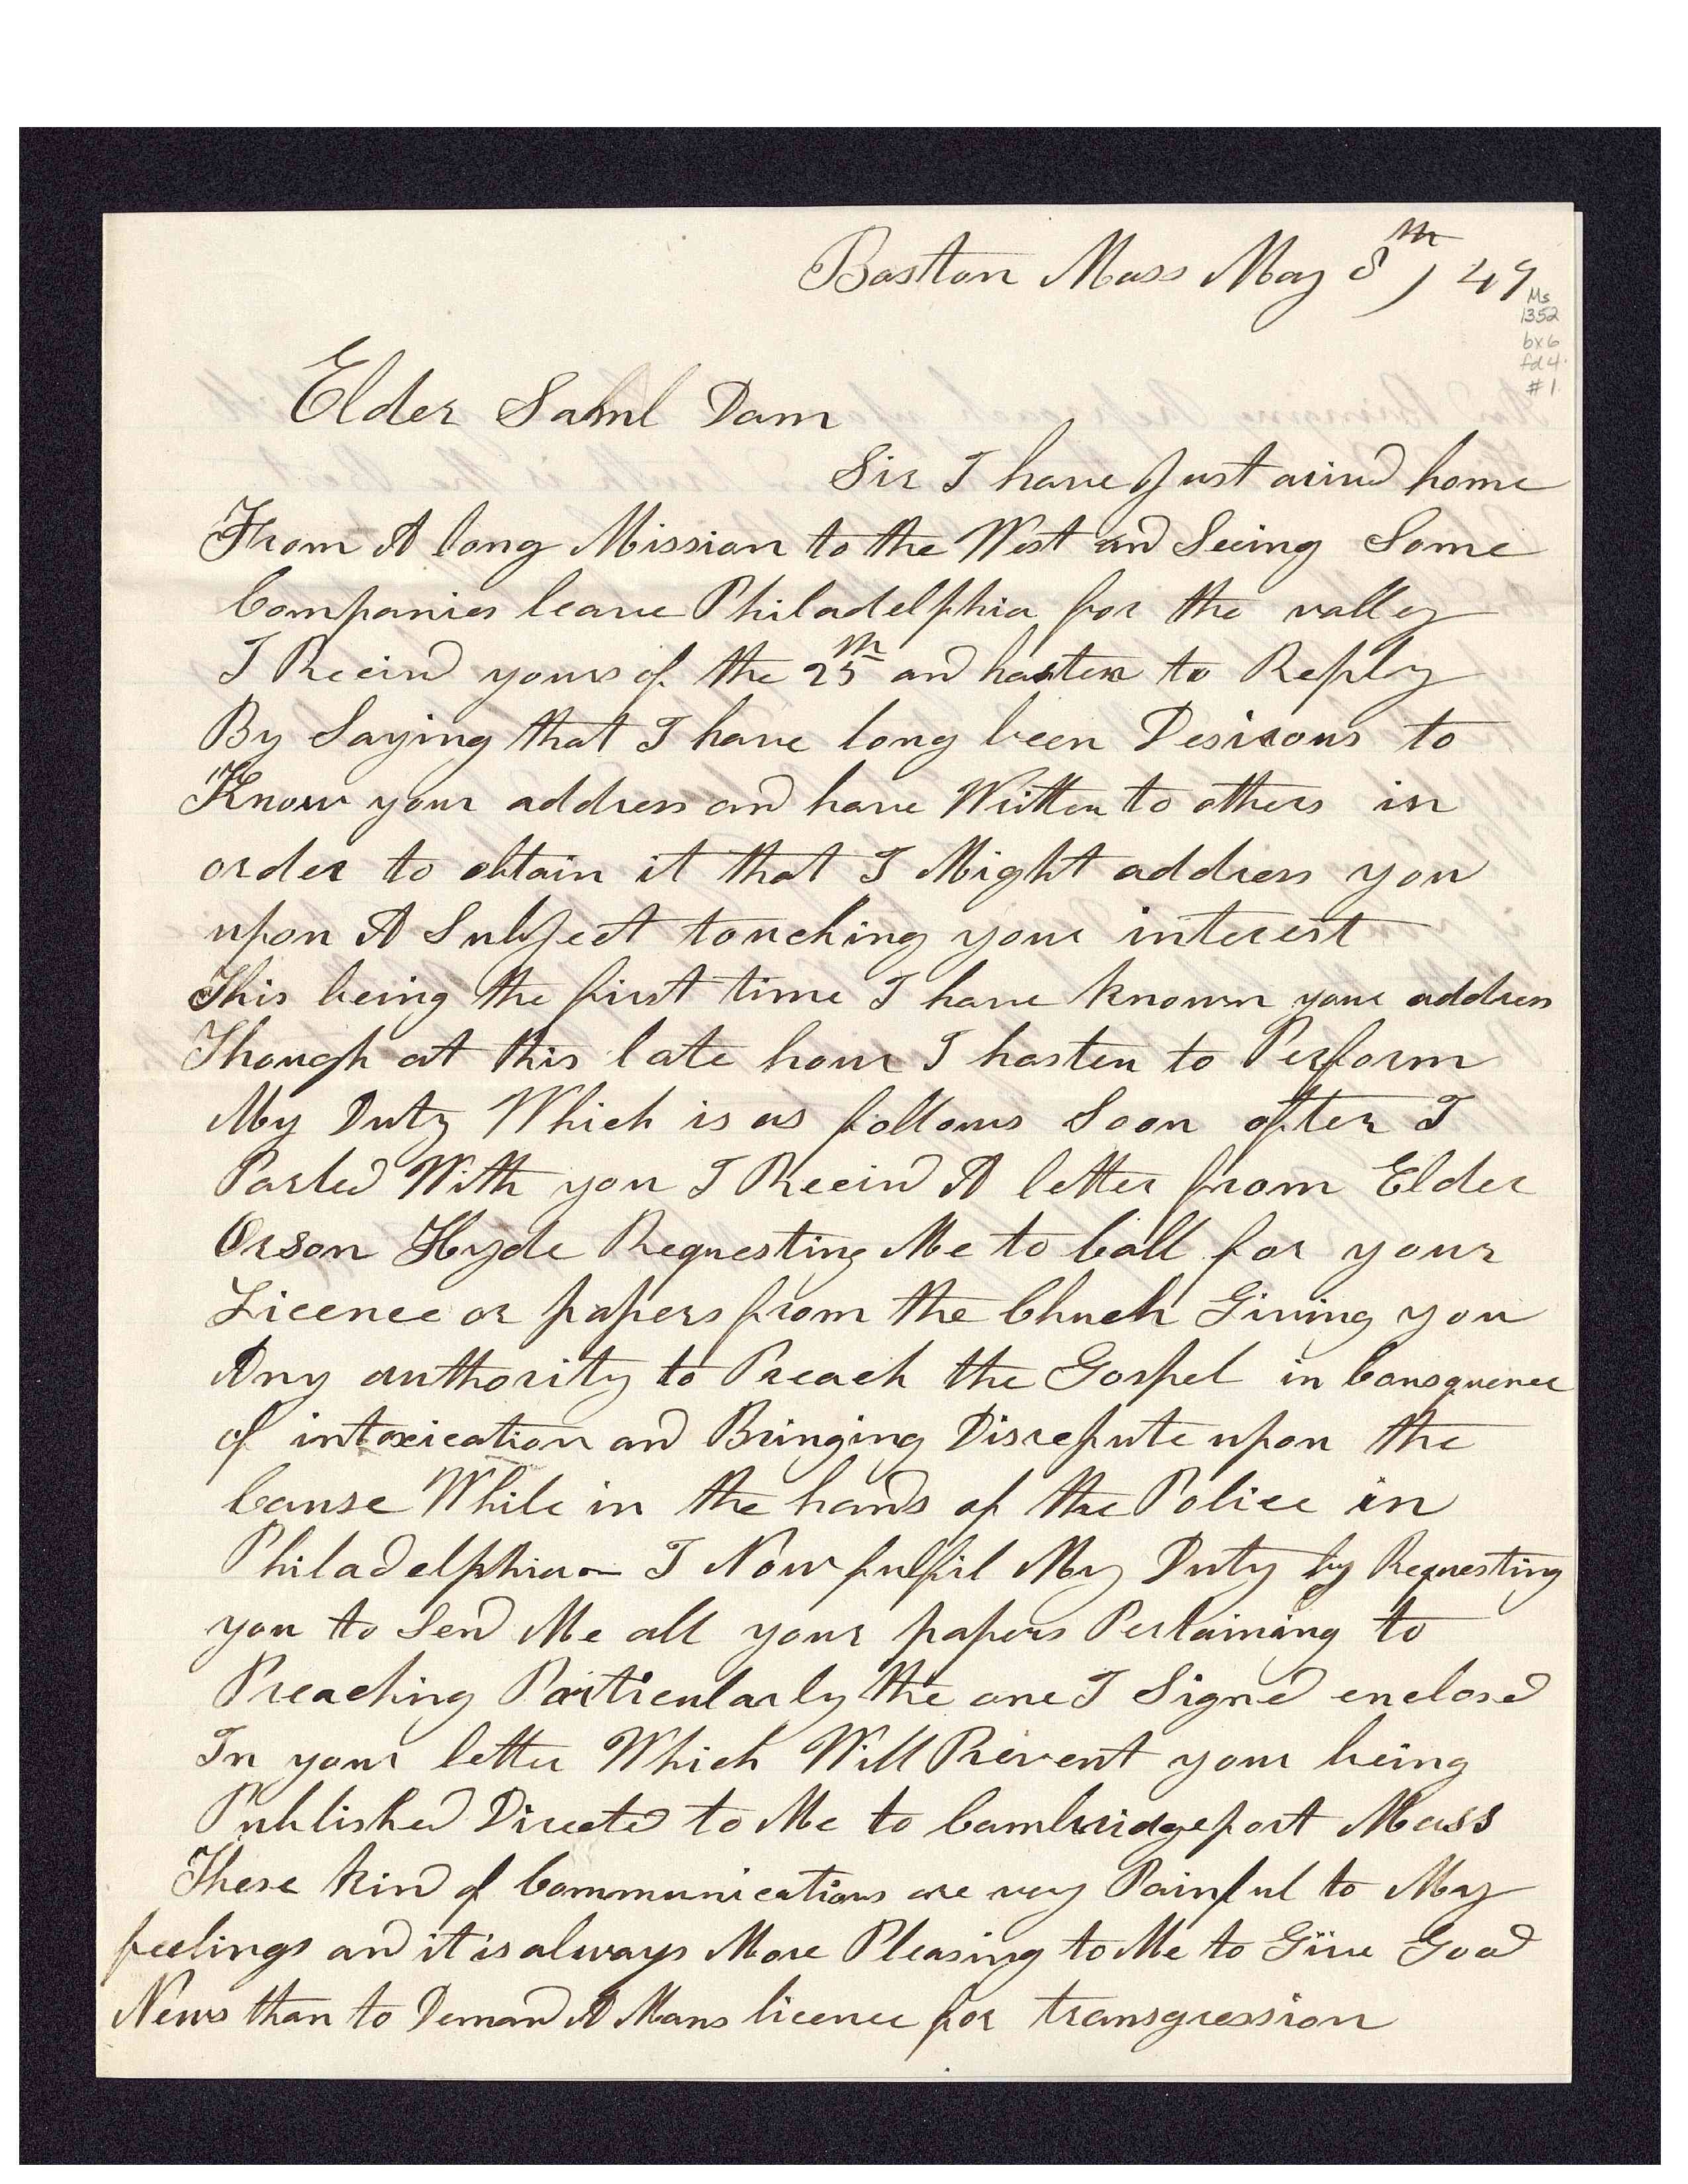 Boston Mass May 8th, 49
Ms
1352
bx6
fd4
#1
Elder Saml Dam
Sir I have Just arivd home
From A long Mission to the West and Seeing Some
Companies leave Philadelphia for the valley
I Receivd yours of the 25th and hasten to Reply
By Saying that I have long been Desirous to
Know your address and have Written to others in
order to obtain it that I Might address you
upon A Subject touching your interest
This being the first time I have known your address
Though at this late hour I hasten to Perform
My Duty Which is as follows Soon after I
Parted With you I Receivd A letter from Elder
Orson Hyde Requesting Me to Call for your
Licence or papers from the Chuch Giving you
Any authority to Preach the Gospel in Consquence
of intoxication and Bringing Disrepute upon the
Cause While in the hands of the Police in
Philadelphia I Now fulfil My Duty by Requesting
you to Send Me all your papers Pertaining to
Preaching Particularly the one I Signed enclosed
In your letter Which Will Prevent your being
Published Directed to Me to Cambridgeport Mass
These kind of Communications are very Painful to My
feelings and it is always More Pleasing to Me to Give Good
News than to Demand A Mans licence for transgression